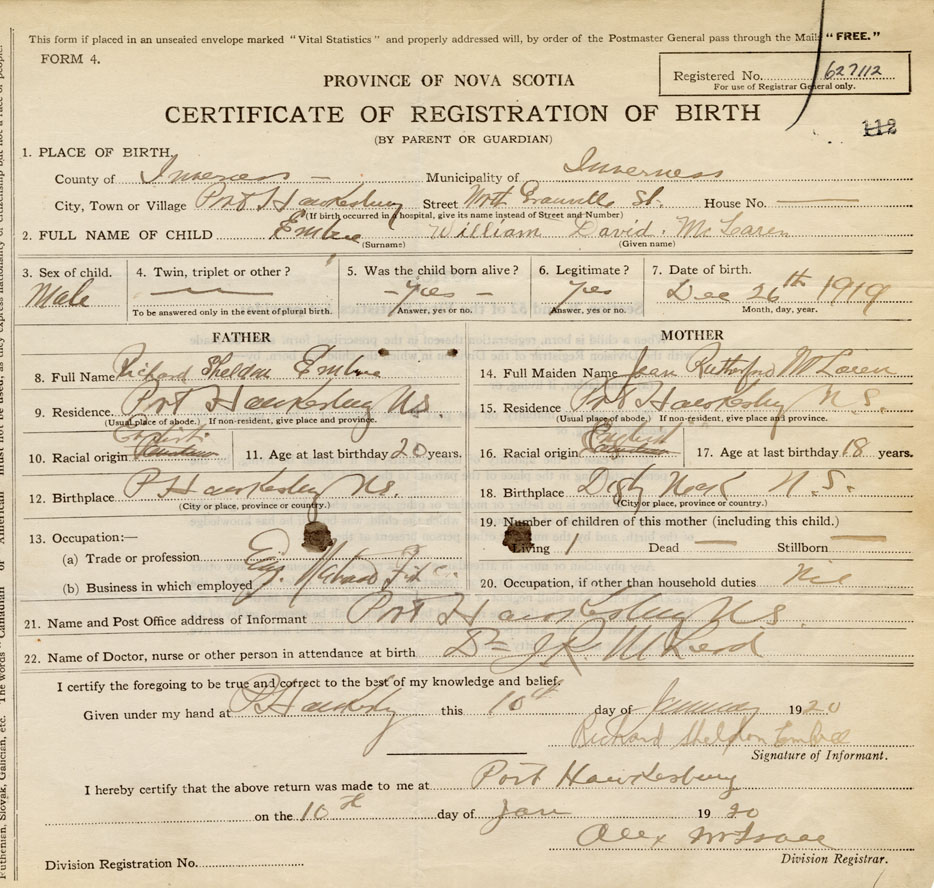 This form if placed in an unsealed envelope marked "Vital Statistics" and properly addressed will, by order of the Postmaster General pass through the Mails "FREE."
FORM 4.
Registered No. 627112
For use of Registrar General only.
PROVINCE OF NOVA SCOTIA
CERTIFICATE OF REGISTRATION OF BIRTH
112
(BY PARENT OR GUARDIAN)
1. PLACE OF BIRTH,
County of Inverness Municipality of Inverness
City, Town or Village Port Hawkesbury Street North Granville St. House No.
(If birth occurred in hospital, give its name instead of Street and Number)
2. FULL NAME OF CHILD Embree William David McLaren
(Surname) (Given name)
3. Sex of child. 4. Twin, triplet or other? 5. Was the child born alive? 6. Legitimate? 7. Date of birth.
Male — – yes – yes Dec 26th 1919
To be answered only in the event of plural birth. Answer, yes or no. Answer, yes or no. Month, day, year.
FATHER MOTHER
8. Full Name Richard Sheldon Embree 14. Full Maiden Name Jean Rutherford McLaren
9. Residence. Port Hawkesbury N.S. 15. Residence Port Hawkesbury N.S.
(Usual place of abode.) If non-resident, give place and province. (Usual place of abode.) If non-resident, give place and province.
10. Racial origin English 11. Age at last birthday 20 years. 16. Racial origin English 17. Age at last birthday 18 years.
12. Birthplace P Hawkesbury N.S. 18. Birthplace Digby Neck N.S.
(City or place, province or country.) (City or place, province or country.)
13. Occupation:— 19. Number of children of this mother (including this child.)
(a) Trade or profession Living 1 Dead — Stillborn —
(b) Business in which employed 20. Occupation, if other than household duties Nil
21. Name and Post Office address of Informant Port Hawkesbury N.S.
22. Name of Doctor, nurse or other person in attendance at birth Dr J.R. McLeod
I certify the foregoing to be true and correct to the best of my knowledge and belief.
Given under my hand at P Hawkesbury this 10th day of January 1920
Richard Sheldon Embree
Signature of Informant.
I hereby certify that the above return was made to me at Port Hawkesbury
on the 10th day of Jan 1920
Alex McIsaac
Division Registration No. Division Registrar.